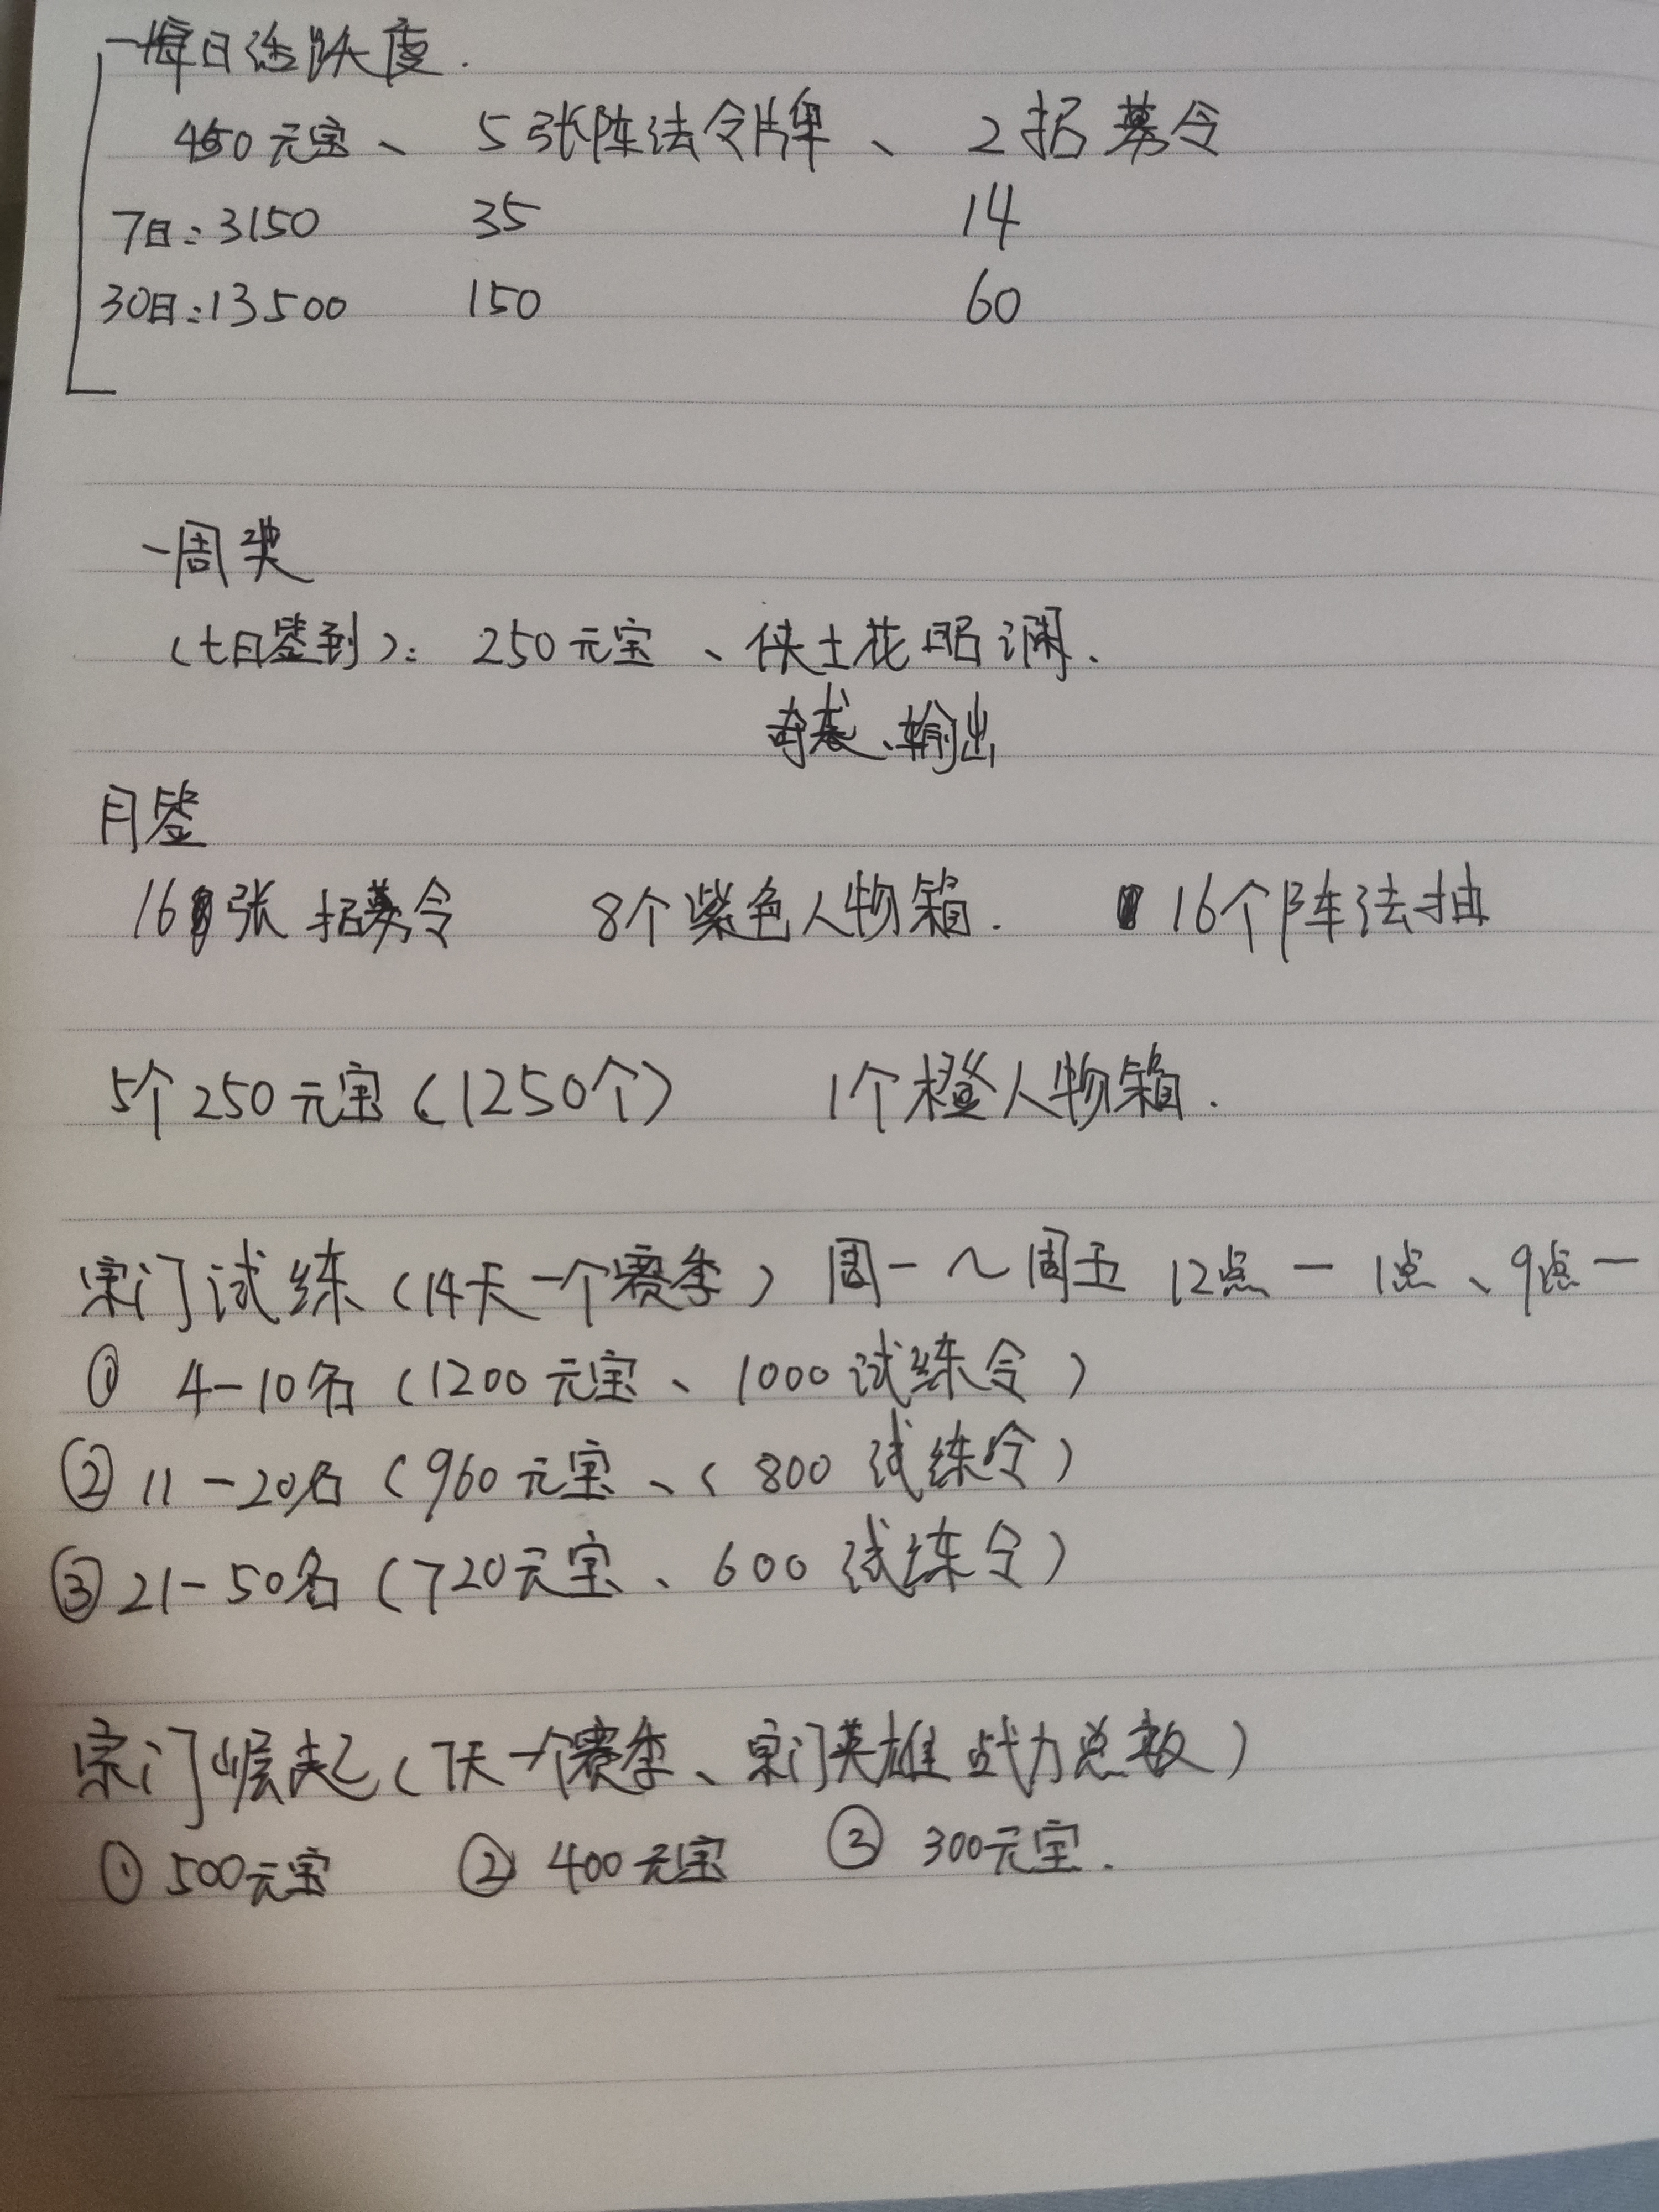 一每日活跃度.
450元宝、 5张阵法令牌、 2招募令
7日:3150 35 14
30日:13500 150 60
一周奖
(七日签到): 250元宝、侠士花昭澜.
奇袭、输出
月签
16张招募令 8个紫色人物箱. 16个阵法抽
5个250元宝(1250个) 1个橙人物箱.
宗门试练(14天一个赛季) 周一~周五 12点一1点、9点一
① 4-10名(1200元宝、1000试练令)
② 11-20名(960元宝、(800试练令)
③ 21-50名(720元宝、600试练令)
宗门崛起(7天一个赛季、宗门英雄战力总数)
① 500元宝 ② 400元宝 ③ 300元宝.